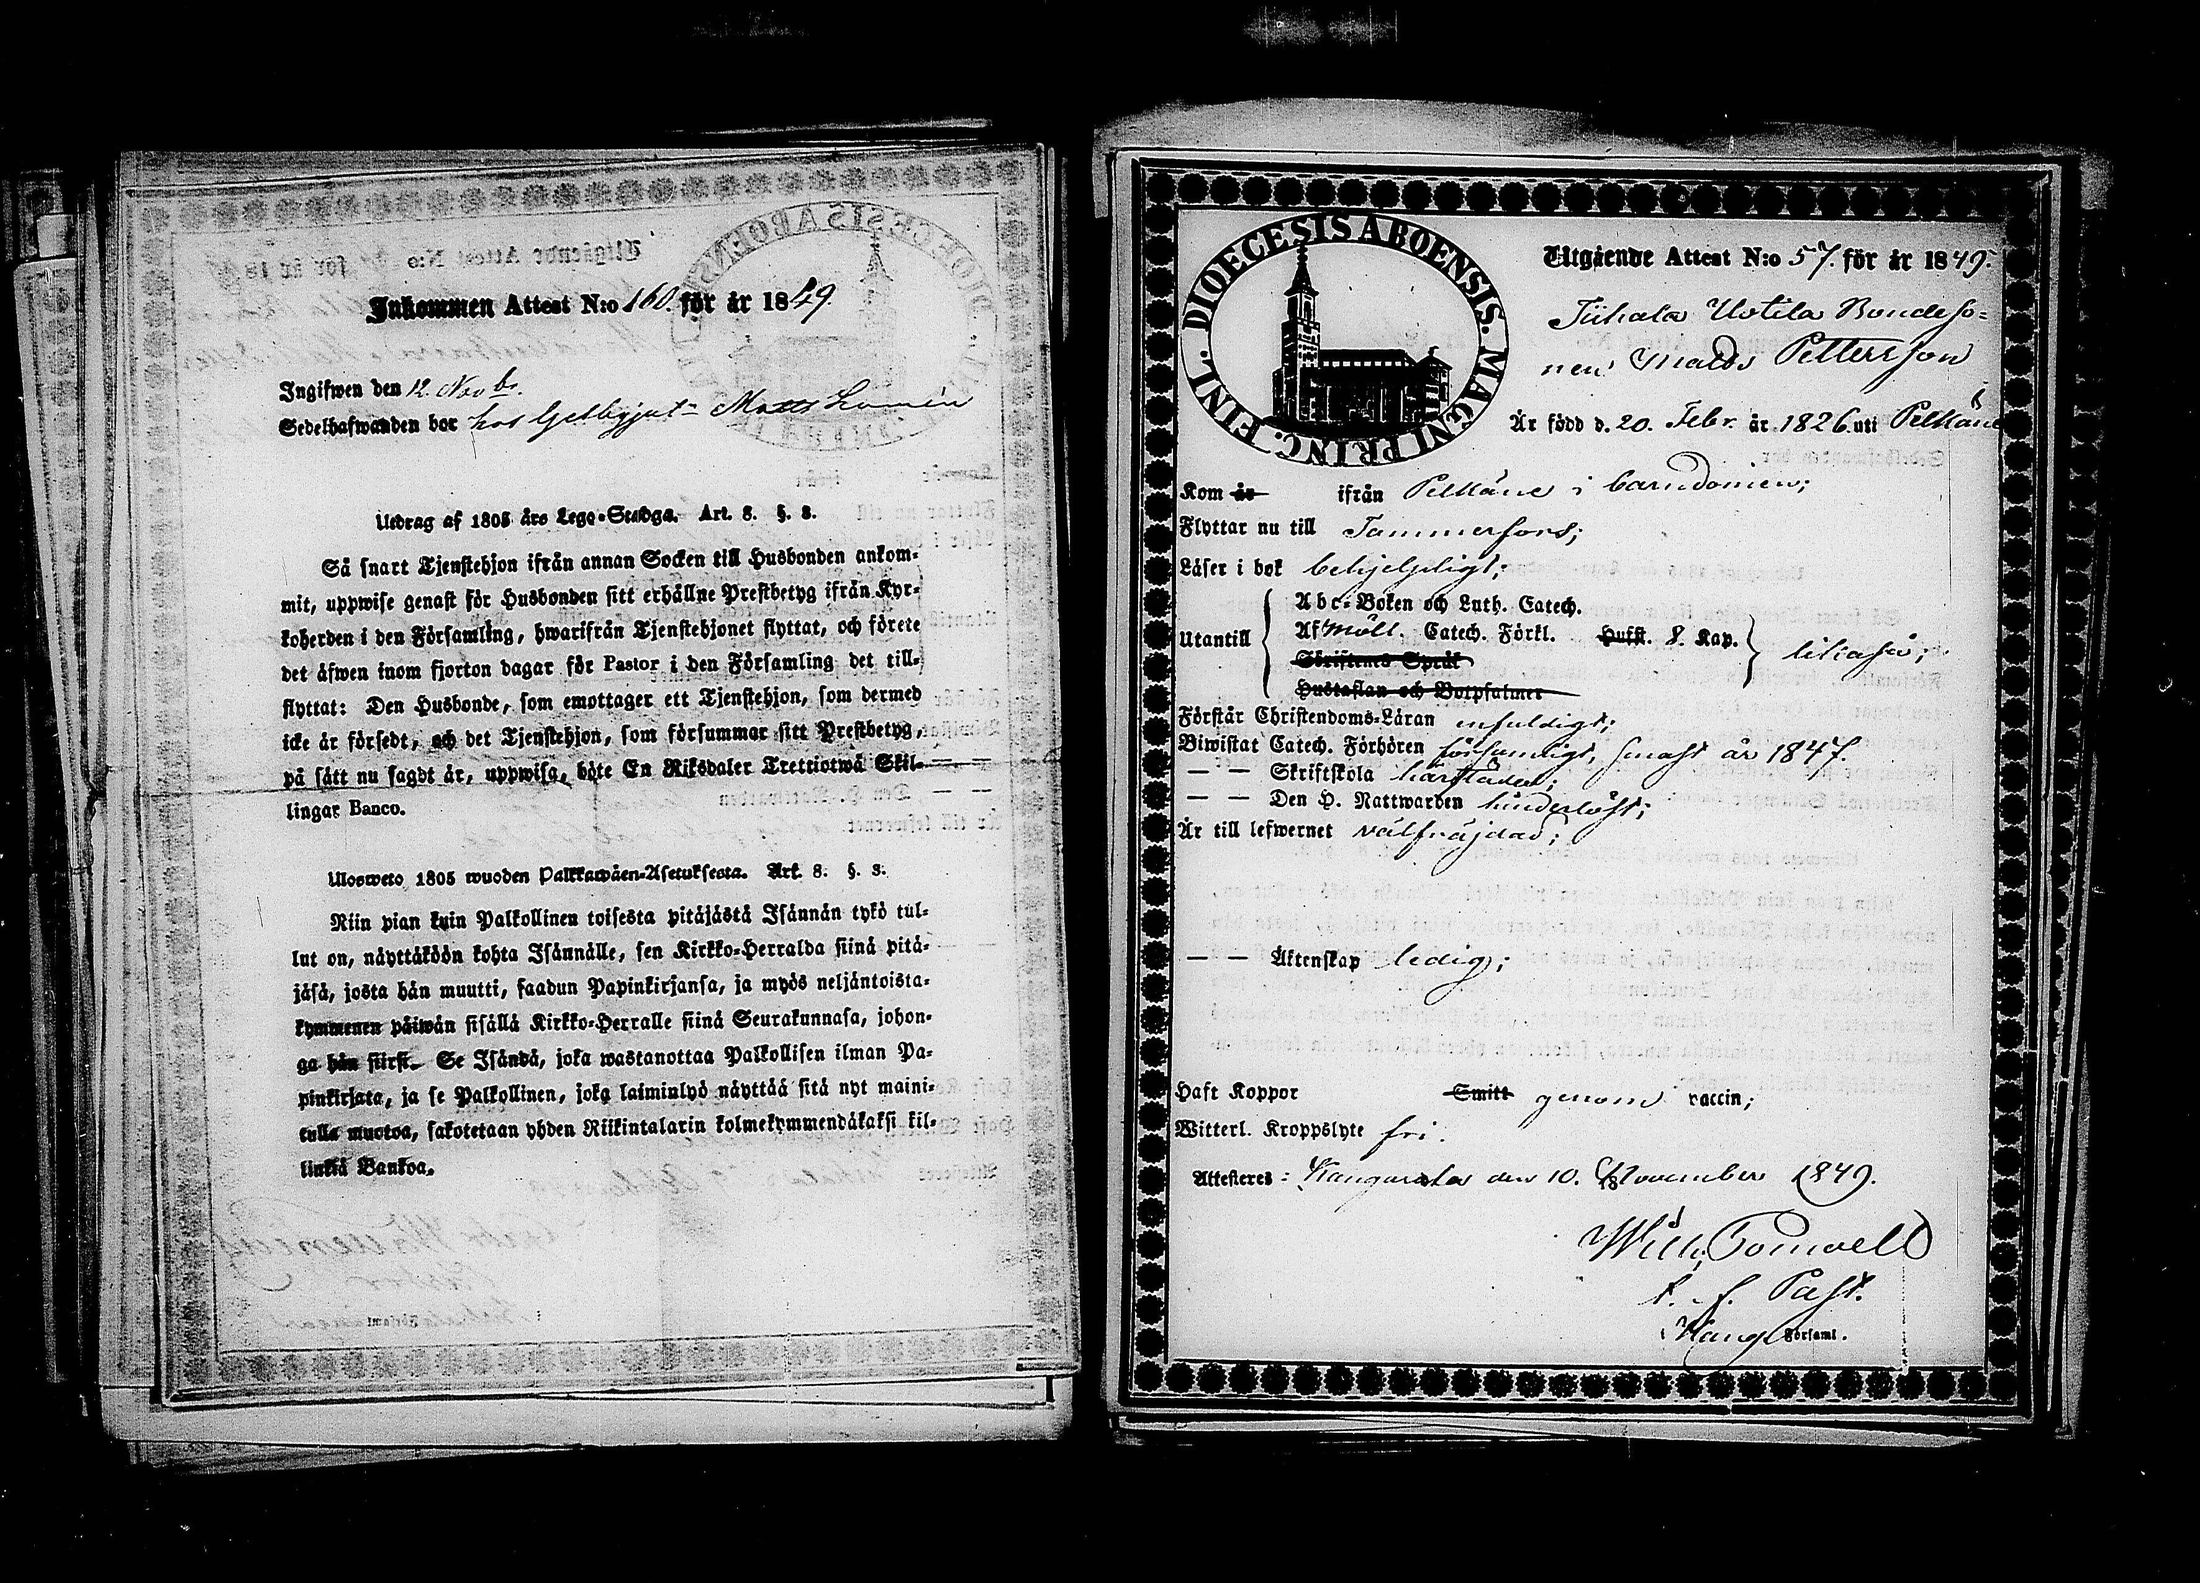 Inkommen Attest N:o 160. för år 1849.
Ingifwen den 12. Novb.
Sedelhafwanden bor hos Gelbgjut Matts Lomén
Utdrag af 1805 års Lego-Stadga. Art. 8. §. 3.
Så snart Tjenstehjon ifrån annan Socken till Husbonden ankom-
mit, uppwise genast för Husbonden sitt erhållne Prestbetyg ifrån Kyr-
koherden i den Församling, hwarifrån Tjenstehjonet flyttat, och förete
det äfwen inom fjorton dagar för Pastor i den Församling det till-
flyttat: Den Husbonde, som emottager ett Tjenstehjon, som dermed
icke är försedt, och det Tjenstehjon, som försummar sitt Prestbetyg,
på sätt nu sagdt är, uppwisa, böte En Riksdaler Trettiotwå Skil-
lingar Banco.
Ulosweto 1805 wuoden Palkkawäen-Asetuksesta. Art. 8. §. 3.
Niin pian kuin Palkollinen toisesta pitäjästä Isännän tykö tul-
lut on, näyttäköön kohta Isännälle, sen Kirkko-Herralda siinä pitä-
jäsä, josta hän muutti, saadun Papinkirjansa, ja myös neljäntoista-
kymmenen päiwän sisällä Kirkko-Herralle siinä Seurakunnasa, johon-
ga hän siirsi. Se Isändä, joka wastanottaa Palkollisen ilman Pa-
pinkirjata, ja se Palkollinen, joka laiminlyö näyttää sitä nyt maini-
tulla muotoa, sakotetaan yhden Riikintalarin kolmekymmendäkaksi kil-
linkiä Bankoa.
DIOECESIS ABOENSIS. MAGNI PRINC. FINL.
Utgående Attest N:o 57. för år 1849.
Tiihala Uotila Bondeso-
nen Matts Pettersson
Är född d. 20. Febr. år 1826. uti Pelkäne
Kom år ifrån Pelkäne i barndomen;
Flyttar nu till Tammerfors;
Läser i bok behjelpligt;
Abc-Boken och Luth. Catech.
Utantill Af Möll. Catech. Förkl. Hufst. 8. Kap. likaså;
Skriftenes Språk
Hustaflan och Botpsalmer
Förstår Christendoms-Läran enfaldigt;
Biwistat Catech. Förhören försumligt, senast år 1847.
— — Skriftskola härstädes;
— — Den H. Nattwarden hinderlöst;
Är till lefwernet välfräjdad;
— — Äktenskap ledig;
Haft Koppor Smitt genom vaccin;
Witterl. Kroppslyte fri.
Attesteres: Kangasala den 10. November 1849.
Wilh. Pomoell
t. f. Past.
i Kang. Församl.